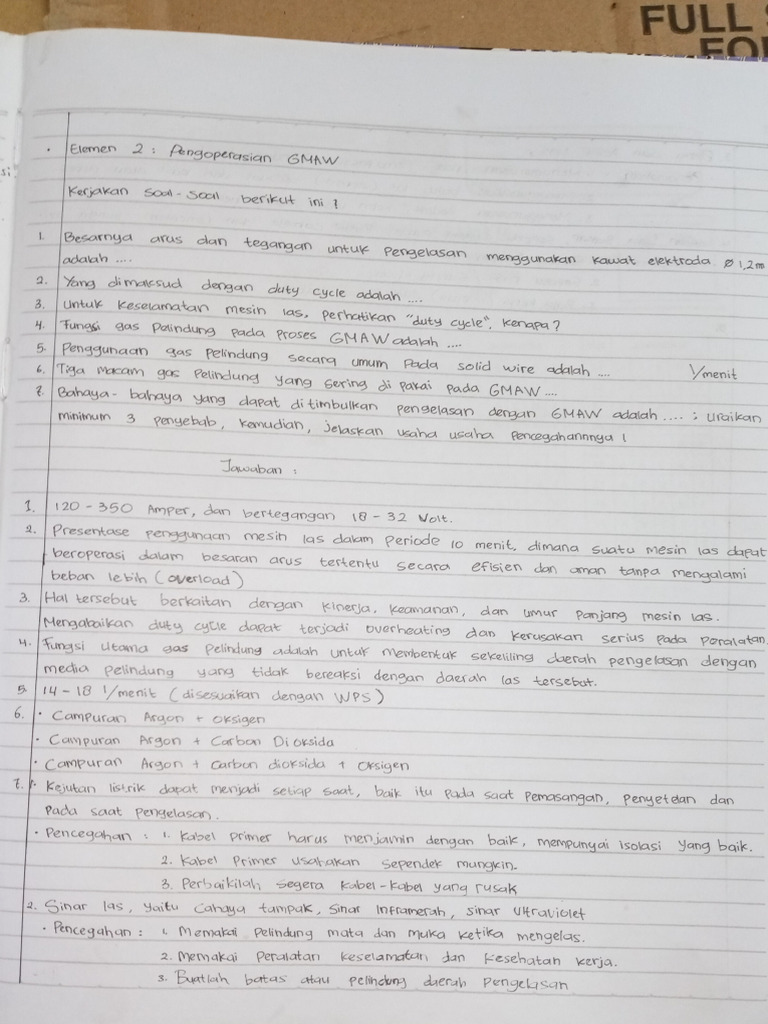 FULL
FO
• Elemen 2 : Pengoperasian GMAW
Kerjakan soal-soal berikut ini !
1. Besarnya arus dan tegangan untuk pengelasan menggunakan kawat elektroda Ø 1,2 m
adalah ....
2. Yang dimaksud dengan duty cycle adalah ....
3. Untuk keselamatan mesin las, perhatikan "duty cycle", kenapa?
4. Fungsi gas Palindung pada proses GMAW adalah ....
5. Penggunaan gas pelindung secara umum pada solid wire adalah .... l/menit
6. Tiga macam gas pelindung yang sering di pakai pada GMAW ....
7. Bahaya-bahaya yang dapat ditimbulkan pengelasan dengan GMAW adalah .... ; uraikan
minimum 3 penyebab, kemudian, jelaskan usaha usaha pencegahannnya !
Jawaban :
1. 120 - 350 Amper, dan bertegangan 18 - 32 Volt.
2. Presentase penggunaan mesin las dalam periode 10 menit, dimana suatu mesin las dapat
beroperasi dalam besaran arus tertentu secara efisien dan aman tanpa mengalami
beban lebih (overload)
3. Hal tersebut berkaitan dengan kinerja, keamanan, dan umur panjang mesin las.
Mengabaikan duty cycle dapat terjadi overheating dan kerusakan serius pada peralatan.
4. Fungsi utama gas pelindung adalah untuk membentuk sekeliling daerah pengelasan dengan
media pelindung yang tidak bereaksi dengan daerah las tersebut.
5. 14 - 18 l/menit (disesuaikan dengan WPS)
6. • Campuran Argon + oksigen
• Campuran Argon + Carbon Dioksida
• Campuran Argon + Carbon dioksida + Oksigen
7. 1. Kejutan listrik dapat menjadi setiap saat, baik itu pada saat pemasangan, penyetelan dan
pada saat pengelasan.
• Pencegahan : 1. Kabel primer harus menjamin dengan baik, mempunyai isolasi yang baik.
2. Kabel Primer usahakan sependek mungkin.
3. Perbaikilah segera kabel-kabel yang rusak
2. Sinar las, yaitu cahaya tampak, sinar Inframerah, sinar Ultraviolet
• Pencegahan : 1. Memakai Pelindung mata dan muka ketika mengelas.
2. Memakai Peralatan keselamatan dan kesehatan kerja.
3. Buatlah batas atau pelindung daerah Pengelasan